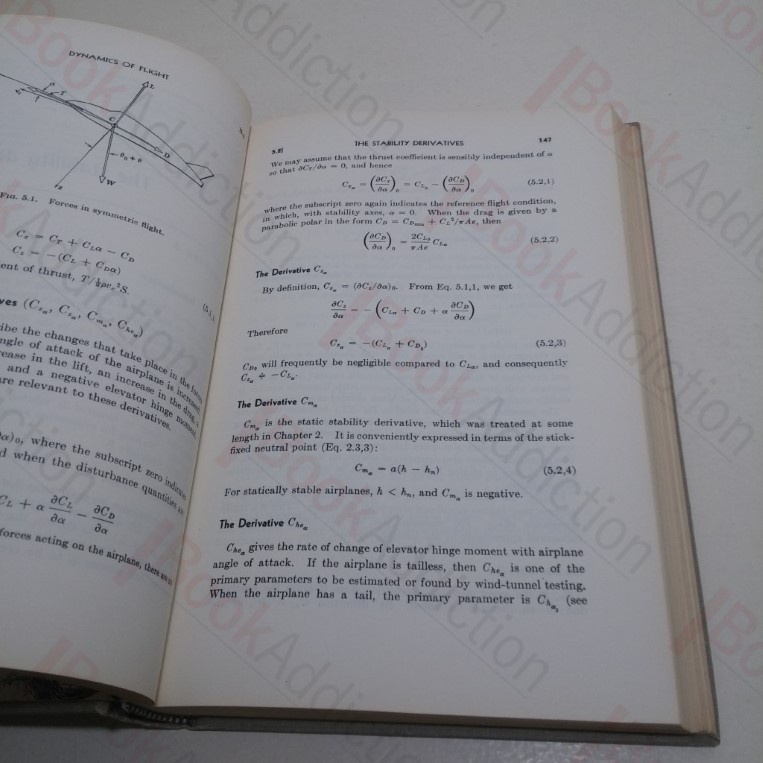 DYNAMICS OF FLIGHT
L
C
D
θ₀ + θ
W
z
FIG. 5.1. Forces in symmetric flight.
Cₓ = C_T + C_Lα − C_D
C_z = −(C_L + C_Dα)
ent of thrust, T/½ρv_c²S.
(5.1,1
ves (C_xα, C_zα, C_mα, C_heα)
ibe the changes that take place in the forces
ngle of attack of the airplane is increased.
rease in the lift, an increase in the drag, a
and a negative elevator hinge moment
are relevant to these derivatives.
∂α)₀, where the subscript zero indicates
d when the disturbance quantities are
C_L + α ∂C_L/∂α − ∂C_D/∂α
forces acting on the airplane, there are no
5.2] THE STABILITY DERIVATIVES 147
We may assume that the thrust coefficient is sensibly independent of α
so that ∂C_T/∂α = 0, and hence
C_xα = (∂Cₓ/∂α)₀ = C_L₀ − (∂C_D/∂α)₀ (5.2,1)
where the subscript zero again indicates the reference flight condition,
in which, with stability axes, α = 0. When the drag is given by a
parabolic polar in the form C_D = C_Dmin + C_L²/πAe, then
(∂C_D/∂α)₀ = 2C_L₀/πAe C_Lα (5.2,2)
The Derivative C_zα
By definition, C_zα = (∂C_z/∂α)₀. From Eq. 5.1,1, we get
∂C_z/∂α = −(C_Lα + C_D + α ∂C_D/∂α)
Therefore
C_zα = −(C_Lα + C_D₀) (5.2,3)
C_D₀ will frequently be negligible compared to C_Lα, and consequently
C_zα ≑ −C_Lα.
The Derivative C_mα
C_mα is the static stability derivative, which was treated at some
length in Chapter 2. It is conveniently expressed in terms of the stick-
fixed neutral point (Eq. 2.3,3):
C_mα = a(h − hₙ) (5.2,4)
For statically stable airplanes, h < hₙ, and C_mα is negative.
The Derivative C_heα
C_heα gives the rate of change of elevator hinge moment with airplane
angle of attack. If the airplane is tailless, then C_heα is one of the
primary parameters to be estimated or found by wind-tunnel testing.
When the airplane has a tail, the primary parameter is C_hαt (see
BookAddiction